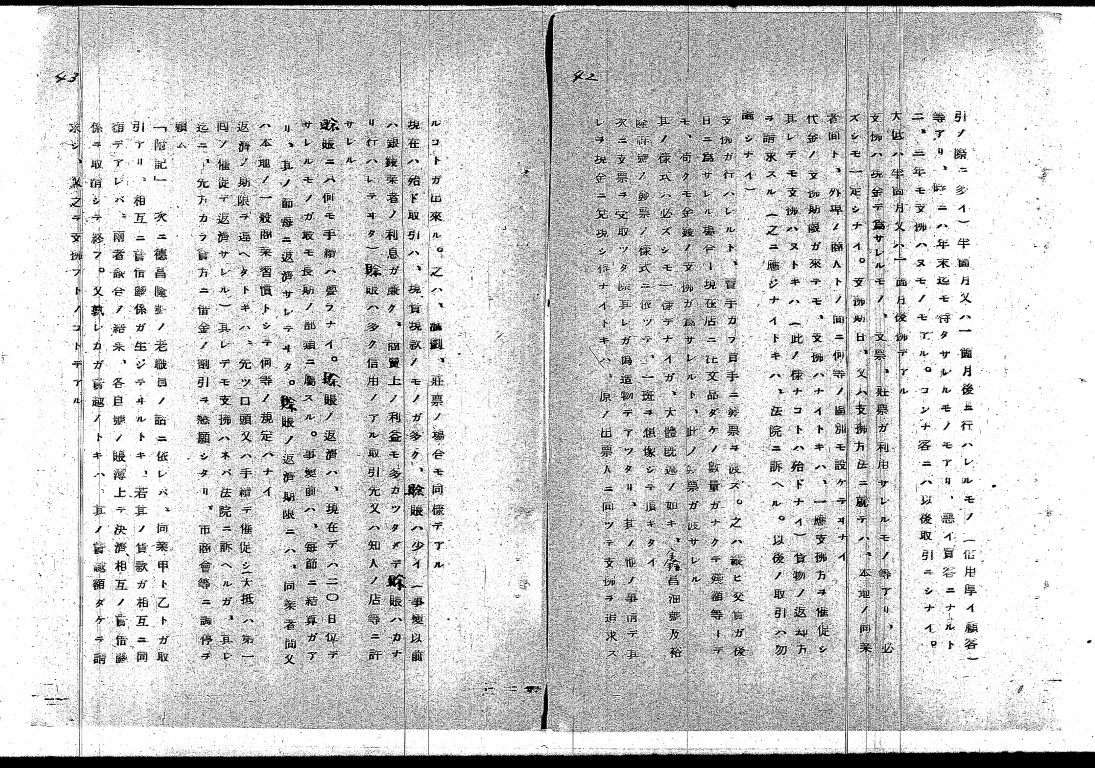 42
引ノ際ニ多イ)半箇月又ハ一箇月後ニ行ハレルモノ(信用厚イ顧客)
等アリ、時ニハ年末迄モ待タサレルモノモアリ、惡イ買客ニナルト
二、三年モ支拂ハヌモノモアル。コンナ客ニハ以後取引ニシナイ。
大低ハ半箇月又ハ一箇月後拂デアル
支拂ハ現金デ爲サレルモノ、支票、莊票ガ利用サレルモノ等アリ、必
ズシモ一定シナイ。支拂期日、又ハ支拂方法ニ就テハ、本地ノ同業
者間ト、外埠ノ商人トノ間ニ何等ノ區別モ設ケテヰナイ
代金ノ支拂期限ガ來テモ、支拂ハナイトキハ、一應支拂方ヲ催促シ
其レデモ支拂ハヌトキハ(此ノ様ナコトハ殆ドナイ)貨物ノ返却方
ヲ請求スル(之ニ應ジナイトキハ、法院ニ訴ヘル。以後ノ取引ハ勿
論シナイ)
支拂ガ行ハレルト、買手カラ賣手ニ
ヲ渡ス。之ハ
日ニ爲サレル場合ー現在店ニハ文品ダケノ數量ガナクテ
等ーデ
モ、苟クモ金錢ノ支拂ガ爲サレルト、此ノ
票ガ渡サレル
其ノ様式ハ必ズシモ一様デナイガ、大體既述ノ如キ、
昌油
及裕
ノ
票ノ様式ニ依ツテ、一斑ヲ想像シテ頂キタイ
次ニ支票ヲ受取ツタ
其レガ僞造物デアツタリ、其ノ他ノ事情デ
ヲ現金ニ兌換シ得ナイトキハ、原ノ出票人ニ向ツテ支拂ヲ追求ス
43
ルコトガ出來ル。之ハ、
、莊票ノ場合モ同様デアル
現在ハ殆ド取引ハ、現貨現款ノモノガ多ク、賒賬ハ少イ(事變以前
ハ銀錢業者ノ利息ガ廉ク、商賣上ノ利益モ多カツタノデ賒賬ハカナ
リ行ハレテヰタ)賒賬ハ多ク信用ノアル取引先又ハ知人ノ店等ニ許
サレル
賒賬ニハ何モ手續ハ要ラナイ。賒賬ノ返濟ハ、現在デハ二〇日位デ
サレルモノガ最モ長期ノ部類ニ屬スル。事變前ハ、毎節ニ結算ガア
リ、其ノ節毎ニ返濟サレテヰタ。賒賬ノ返濟期限ニハ、同業者間又
ハ本地ノ一般商業習慣トシテ何等ノ規定ハナイ
返濟ノ期限ヲ違ヘタトキハ、先ヅ口頭又ハ手紙デ催促シ(大抵ハ第一
回ノ催促デ返濟サレル)其レデモ支拂ハネバ法院ニ訴ヘルガ、其レ
迄ニ、先方カラ賣方ニ借金ノ割引ヲ懇願シタリ、市商會等ニ調停ヲ
願フ
「附記」 次ニ德昌隆
ノ老職員ノ話ニ依レバ、同業甲ト乙トガ取
引アリ、相互ニ貸借關係ガ生ジテヰルトキ、若其ノ貨款ガ相互ニ同
額デアレバ、兩者談合ノ結果、各自號ノ賬簿上デ決濟相互ノ貸借關
係ヲ取消シテ終フ。又孰レカガ貸越ノトキハ、其ノ貸越額ダケヲ請
求シ、
之ヲ支拂フトノコトデアル